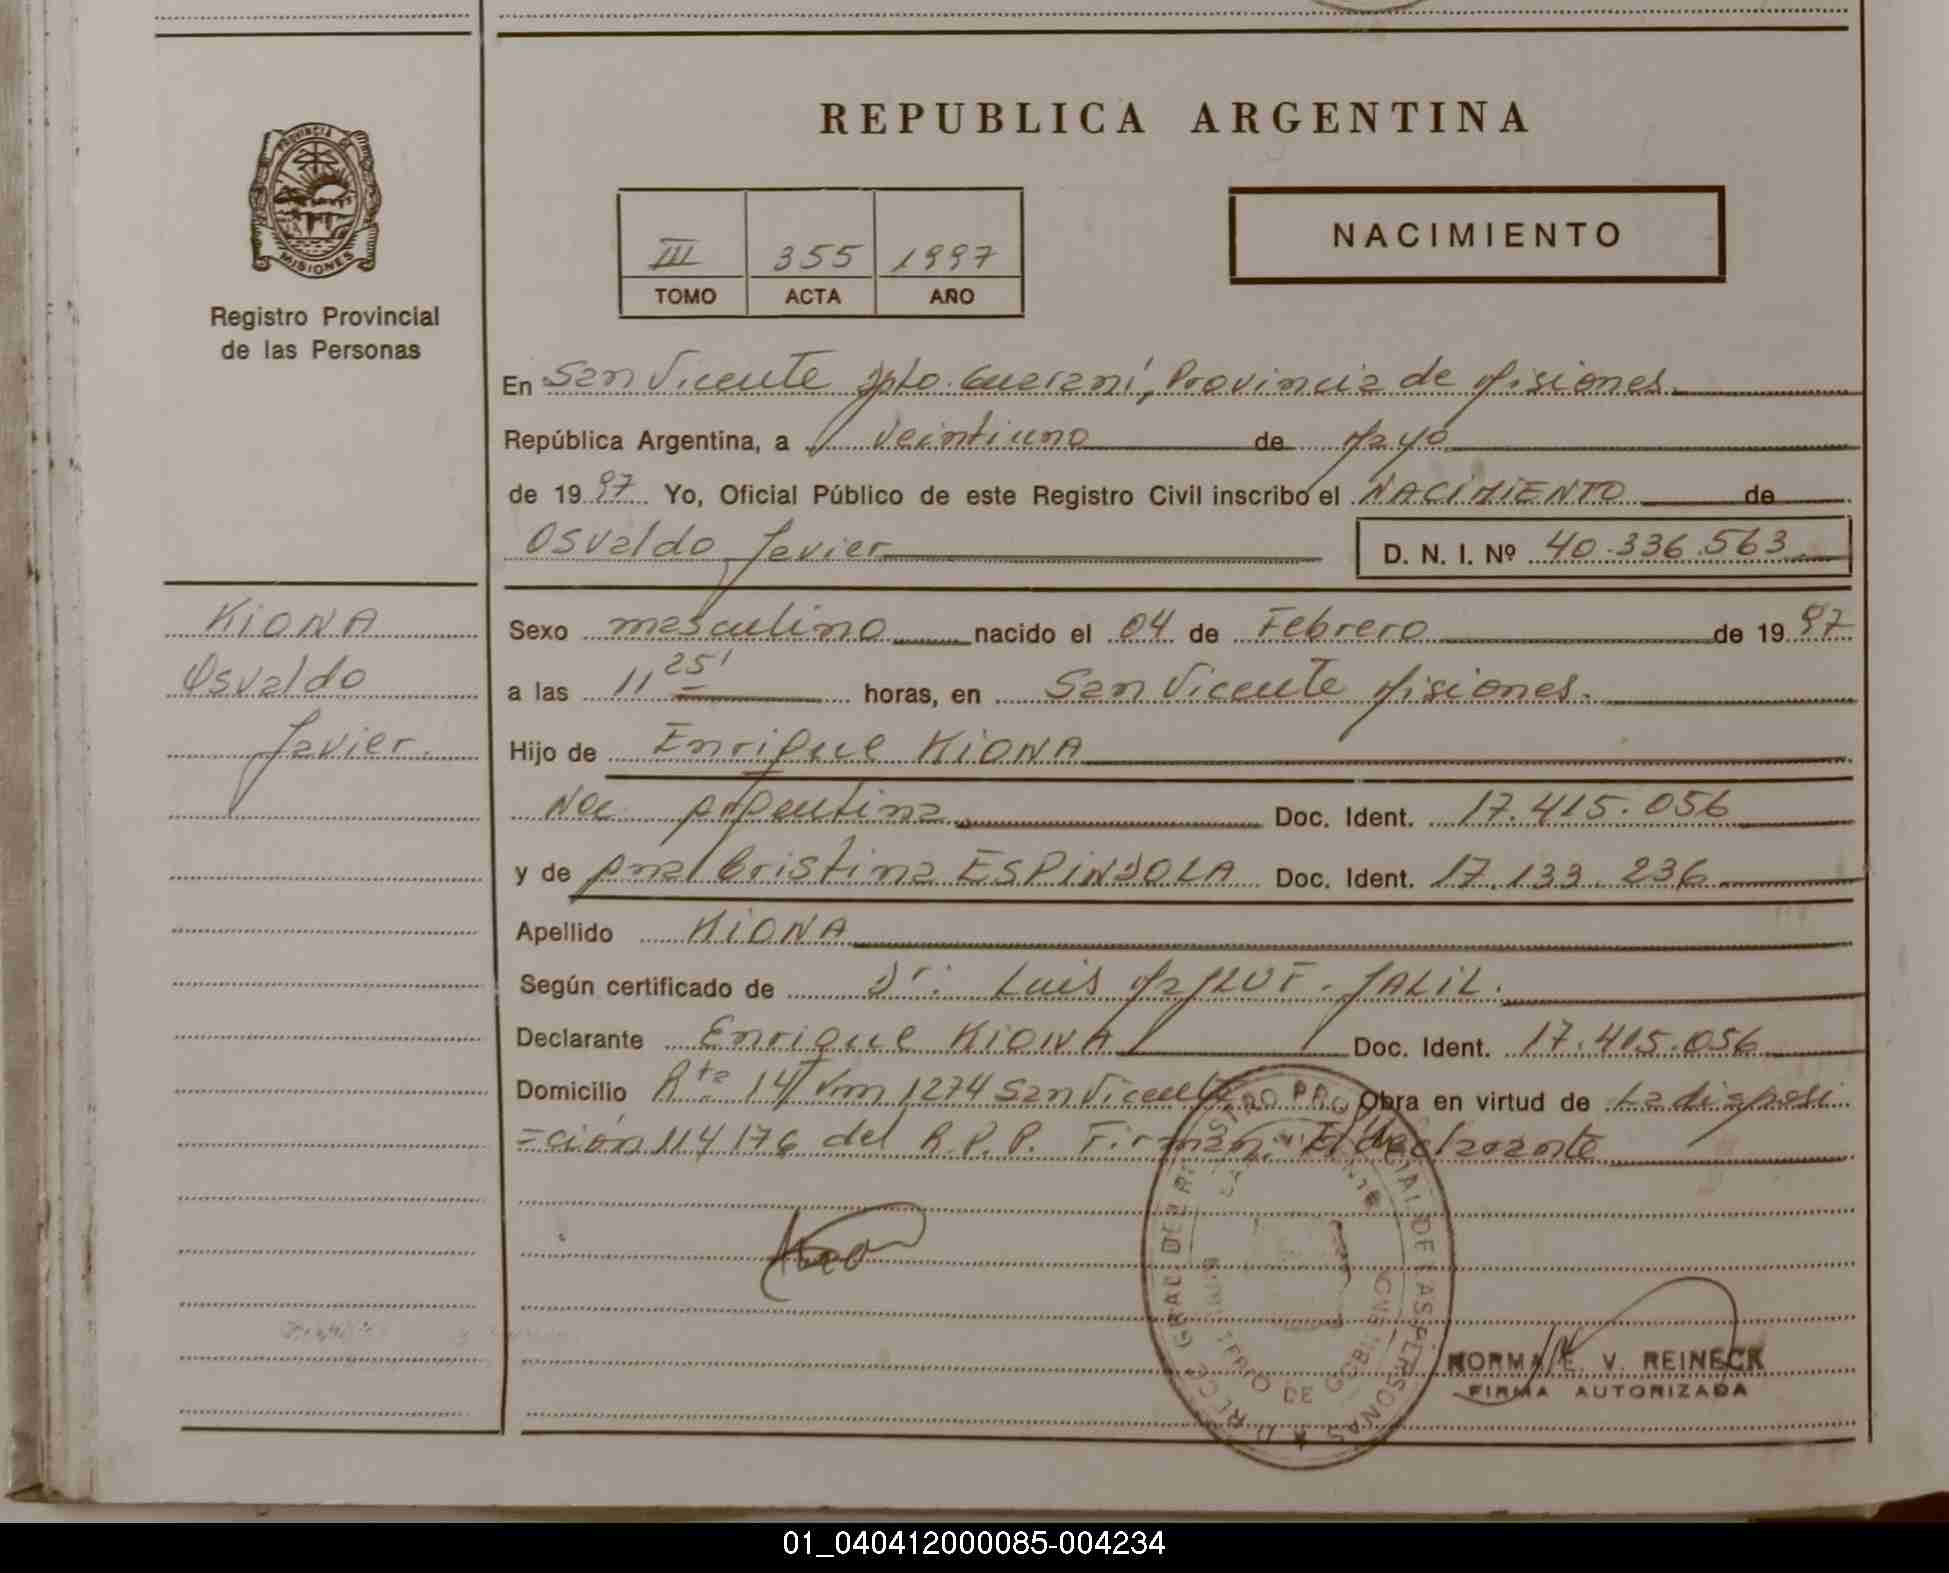 REPUBLICA ARGENTINA
PROVINCIA DE
MISIONES
Registro Provincial
de las Personas
III 355 1997
TOMO ACTA AÑO
NACIMIENTO
En San Vicente Dpto. Guaraní, Provincia de Misiones
República Argentina, a veintiuno de Mayo
de 1997 Yo, Oficial Público de este Registro Civil inscribo el NACIMIENTO de
Osvaldo Javier D. N. I. Nº 40.336.563
KIONA
Osvaldo
Javier.
Sexo masculino nacido el 04 de Febrero de 1997
a las 11,25' horas, en San Vicente Misiones.
Hijo de Enrique KIONA
Nac Argentina Doc. Ident. 17.415.056
y de Ana Cristina ESPINDOLA Doc. Ident. 17.133.236
Apellido KIONA
Según certificado de Dr. Luis JALIL.
Declarante Enrique KIONA Doc. Ident. 17.415.056
Domicilio Rta 14 Km 1274 San Vicente Obra en virtud de La disposi
=ción 114/76 del R.P.P. Firman. El declarante
NORMA E. V. REINECK
FIRMA AUTORIZADA
01_040412000085-004234